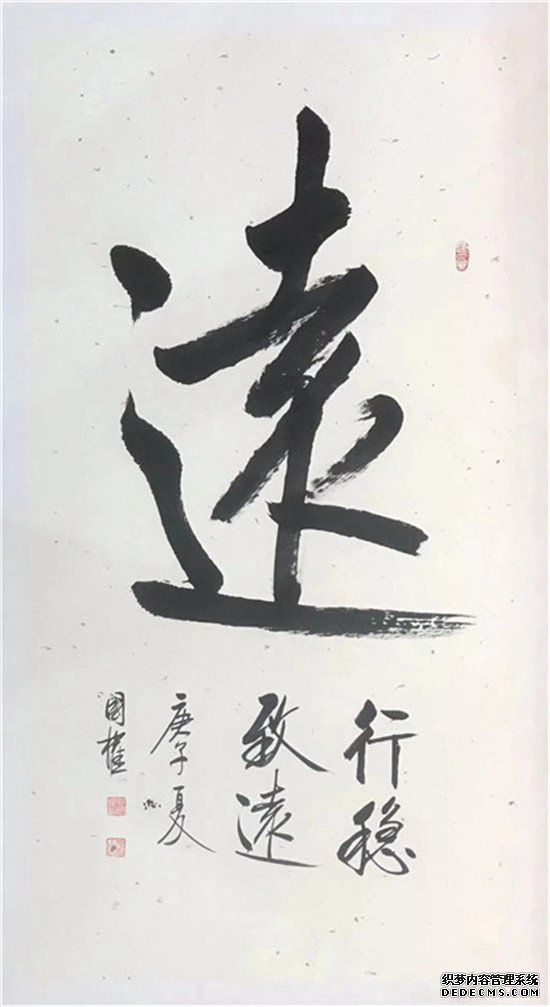 遠
行稳
致遠
庚子夏
國權
织梦内容管理系统
DEDECMS.COM